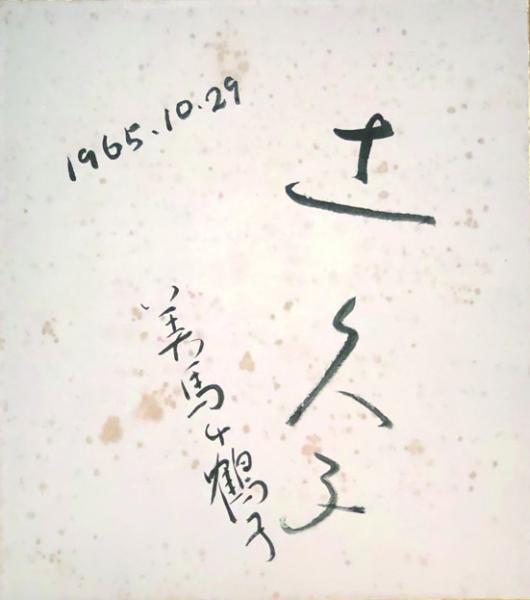 1965.10.29
辻久子
美馬千鶴子